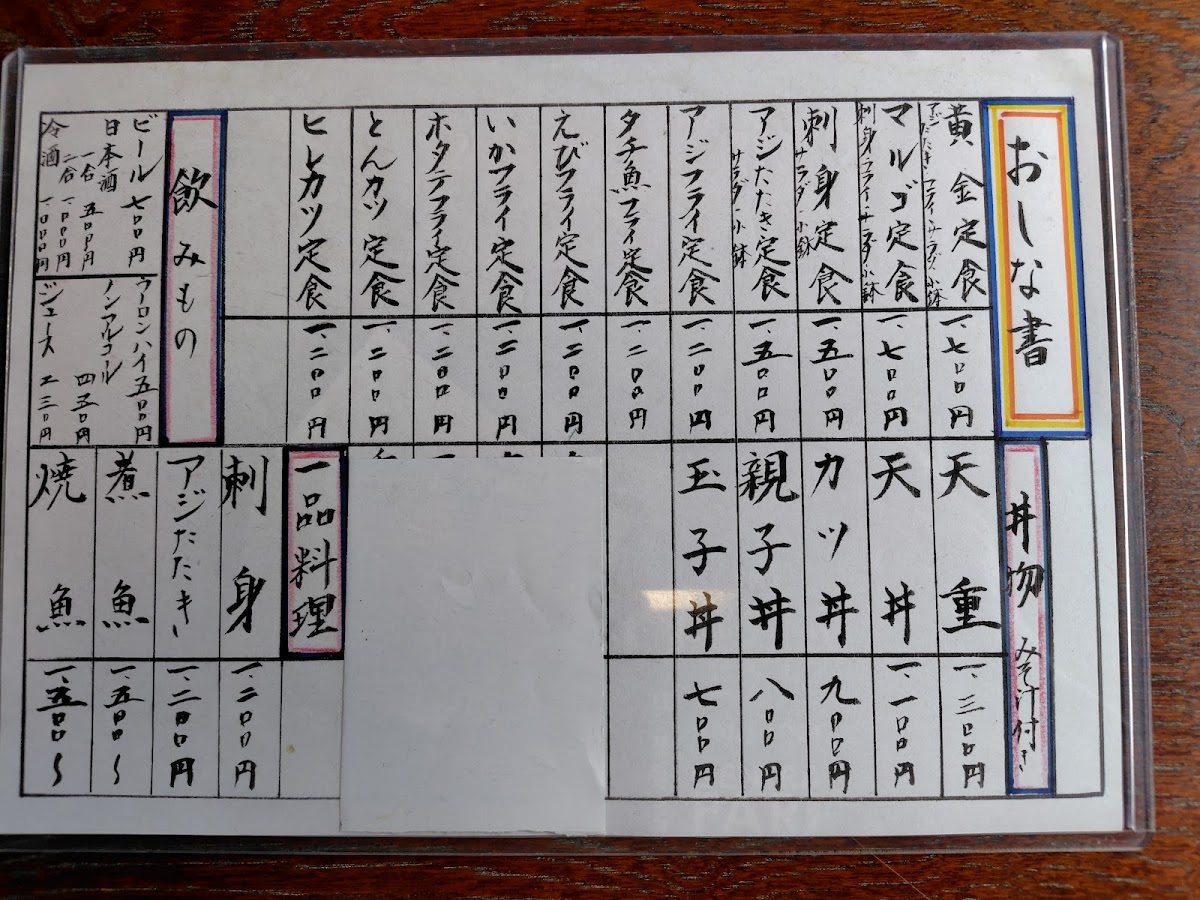 おしな書
黄金定食
アジたたき フライ・サラダ・小鉢
一、七〇〇円
マルゴ定食
刺身・フライ・サラダ・小鉢
一、七〇〇円
刺身定食
サラダ・小鉢
一、五〇〇円
アジたたき定食
サラダ・小鉢
一、五〇〇円
アジフライ定食
一、二〇〇円
タチ魚フライ定食
一、二〇〇円
えびフライ定食
一、二〇〇円
いかフライ定食
一、二〇〇円
ホタテフライ定食
一、二〇〇円
とんカツ定食
一、二〇〇円
ヒレカツ定食
一、二〇〇円
飲みもの
ビール 七〇〇円
日本酒
一合 五〇〇円
二合 一、〇〇〇円
冷酒 一、〇〇〇円
ウーロンハイ 五〇〇円
ノンアルコール 四五〇円
ジュース 二三〇円
丼物 みそ汁付き
天重
一、三〇〇円
天丼
一、一〇〇円
カツ丼
九〇〇円
親子丼
八〇〇円
玉子丼
七〇〇円
一品料理
刺身
一、二〇〇円
アジたたき
一、二〇〇円
煮魚
一、五〇〇〜
焼魚
一、五〇〇〜